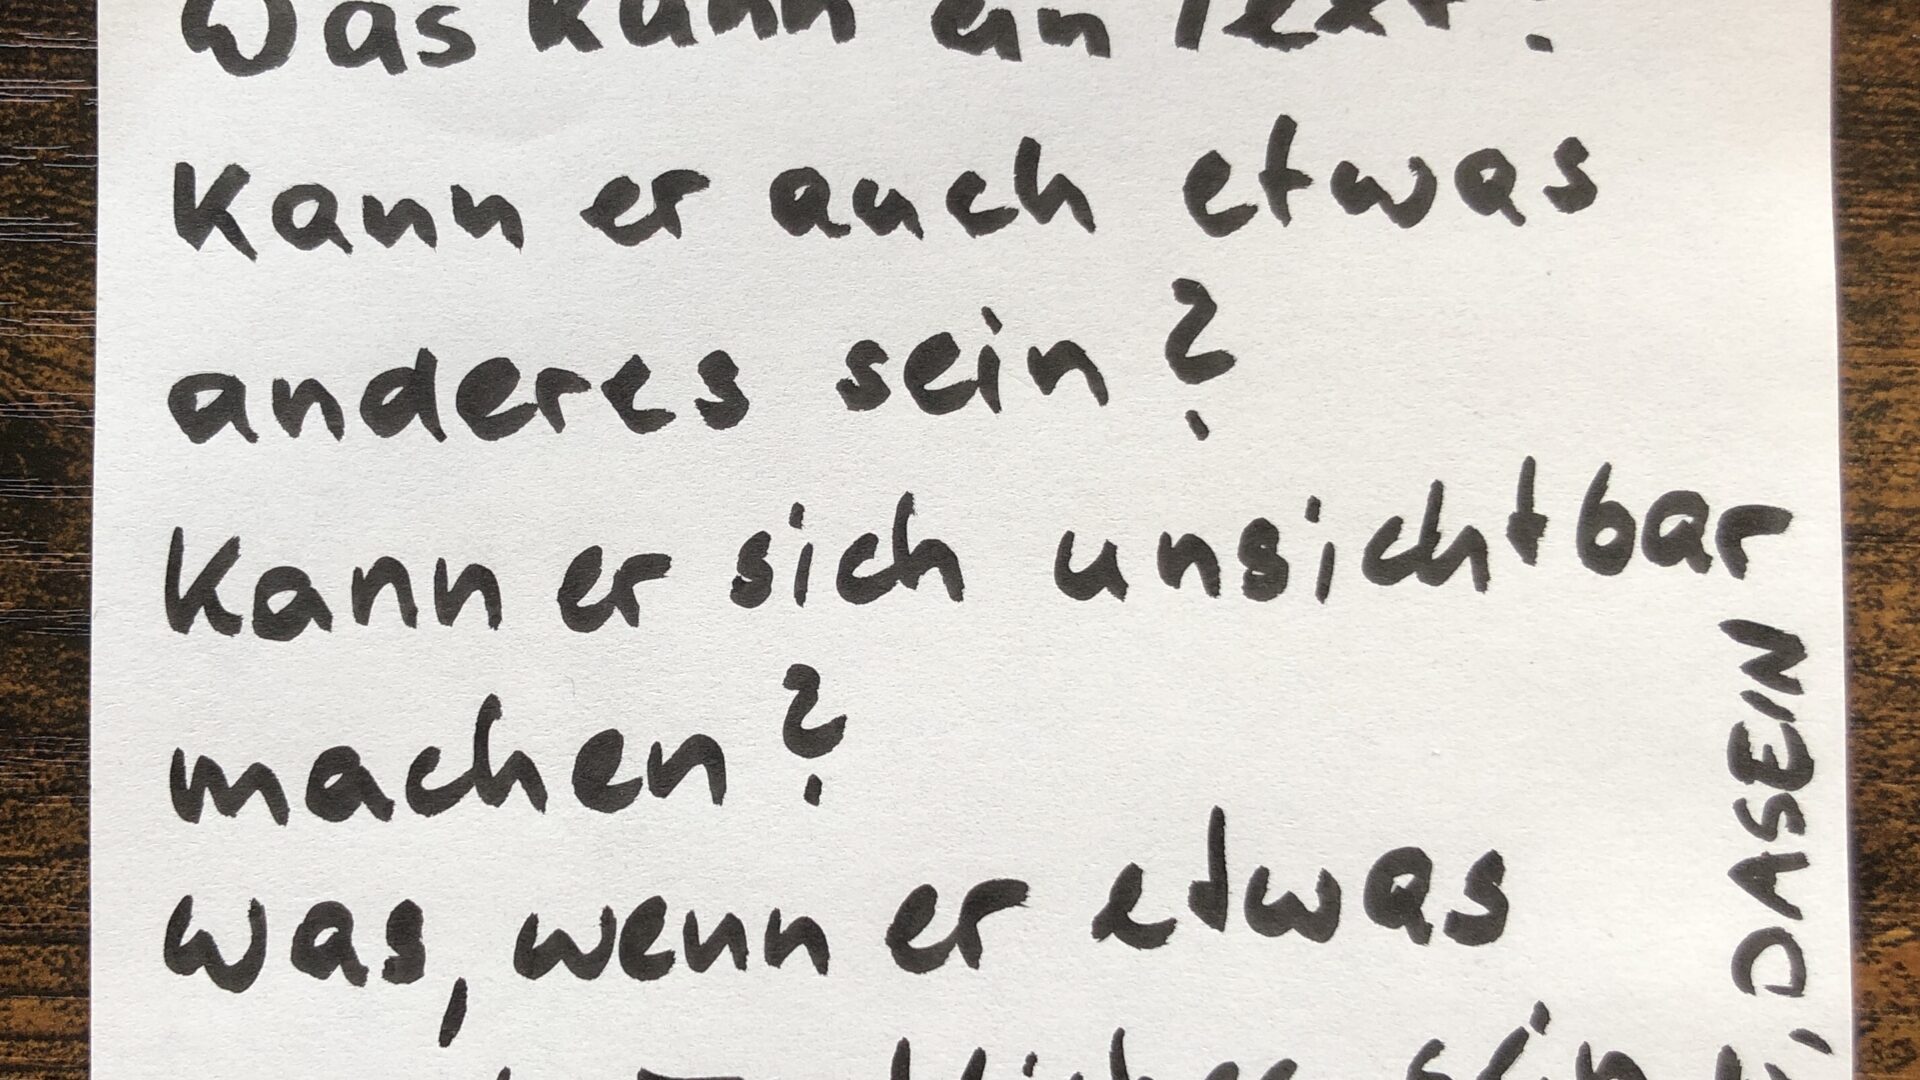 Was kann ein Text?
Kann er auch etwas
anderes sein?
Kann er sich unsichtbar
machen?
Was, wenn er etwas
sein
DASEIN